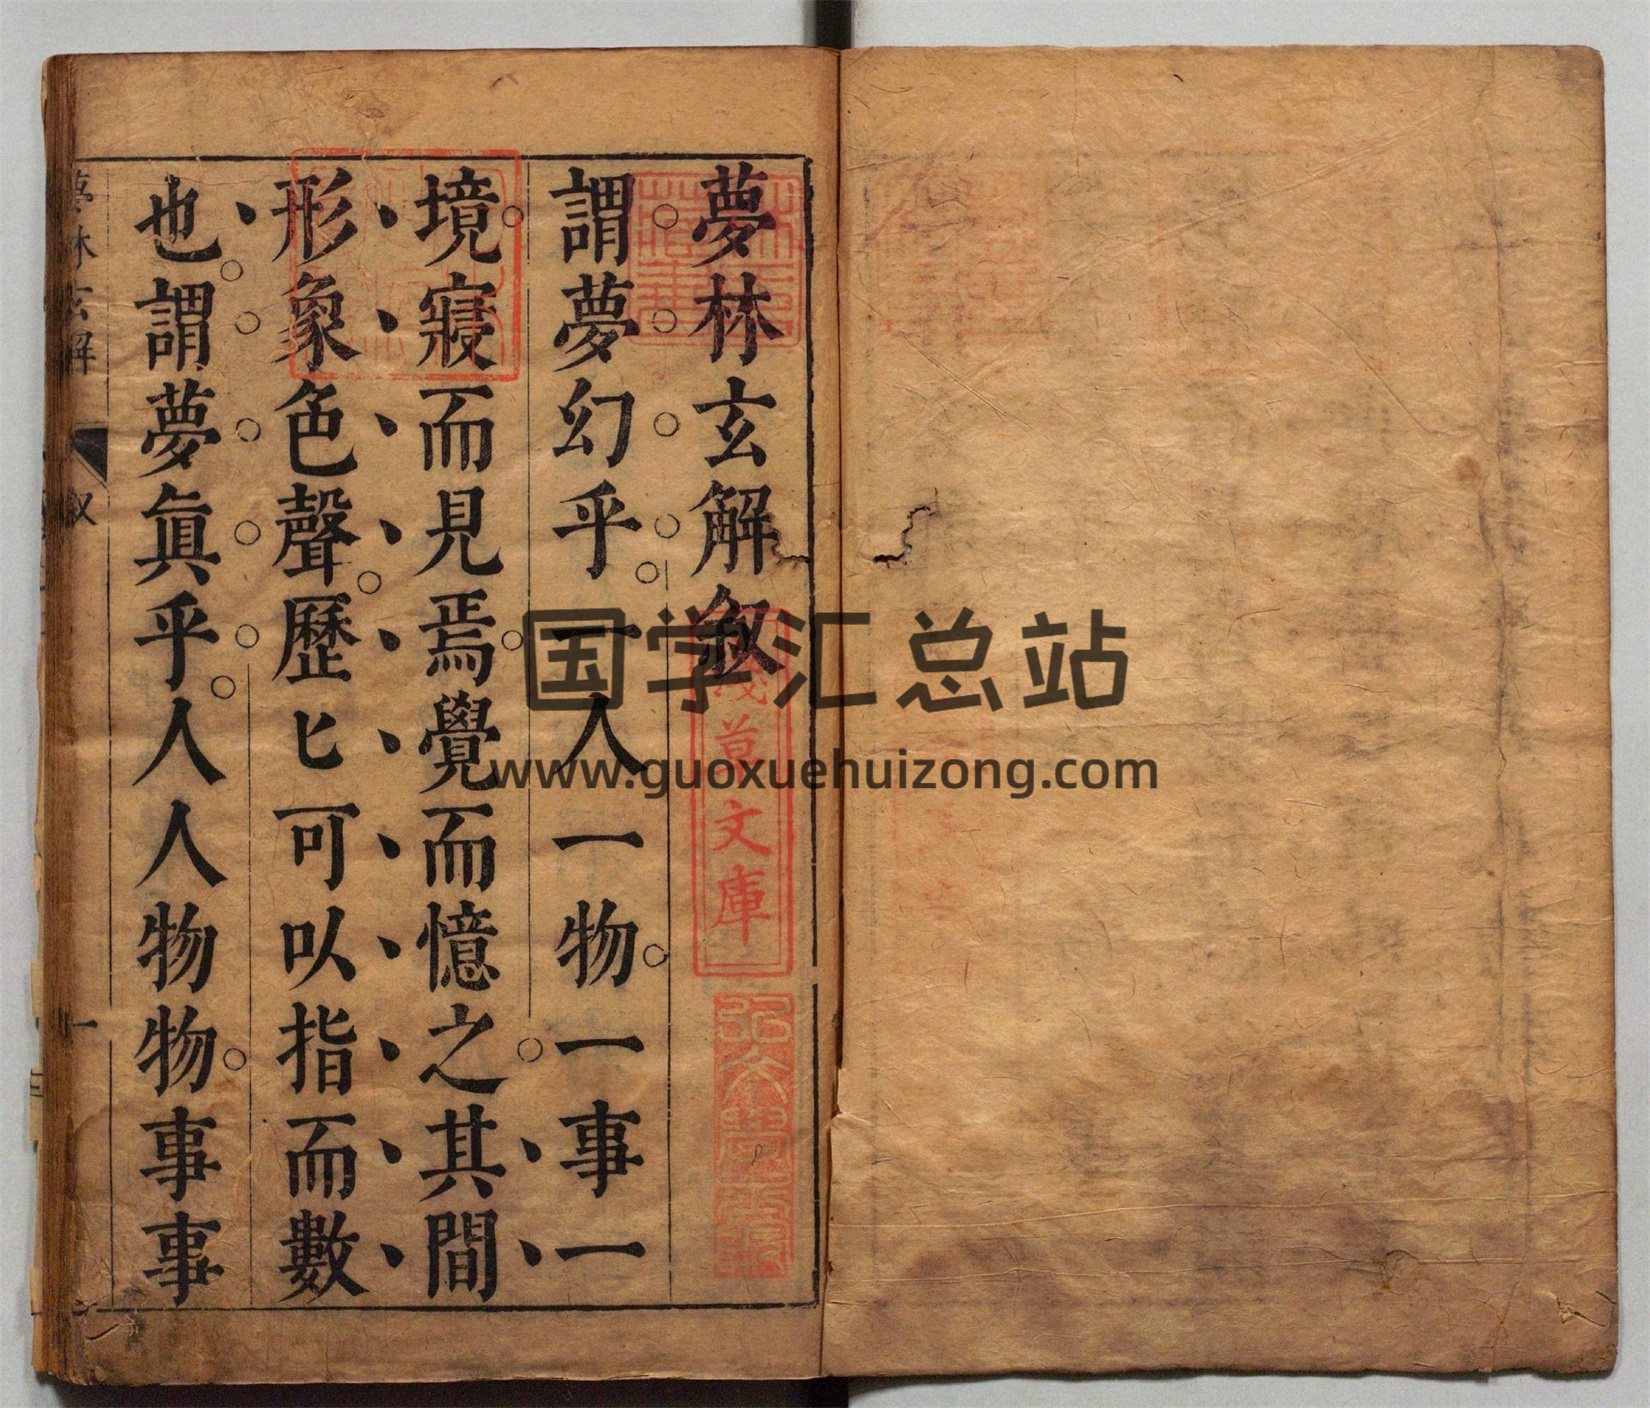 夢林玄解敘
謂夢幻乎一人一物一事一
境寢而見焉覺而憶之其間
形象色聲歷歷可以指而數
也謂夢眞乎人人物物事事
夢林玄解
敘
一
淺草文庫
国学汇总站
www.guoxuehuizong.com